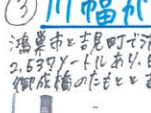 ③川幅が
鴻巣市と吉見町で
2,537メートルあり、
御成橋のたもとと